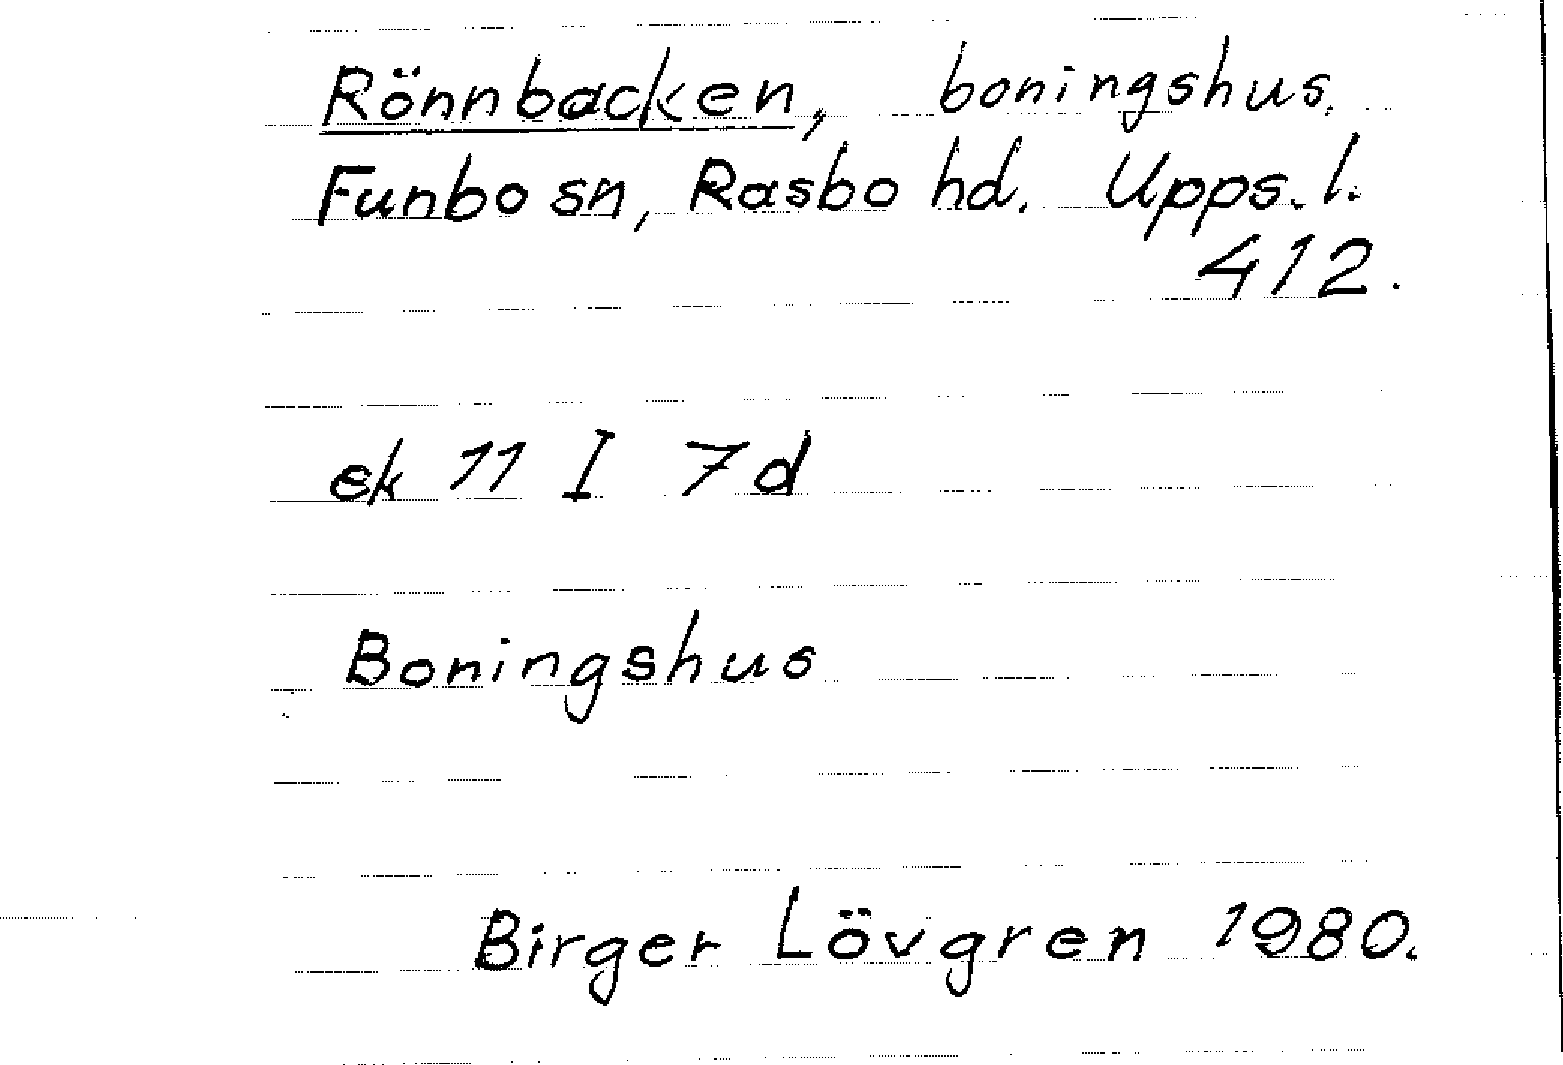 Rönnbacken, boningshus.
Funbo sn, Rasbo hd. Upps. l.
412.
ek 11 I 7d
Boningshus
Birger Lövgren 1980.